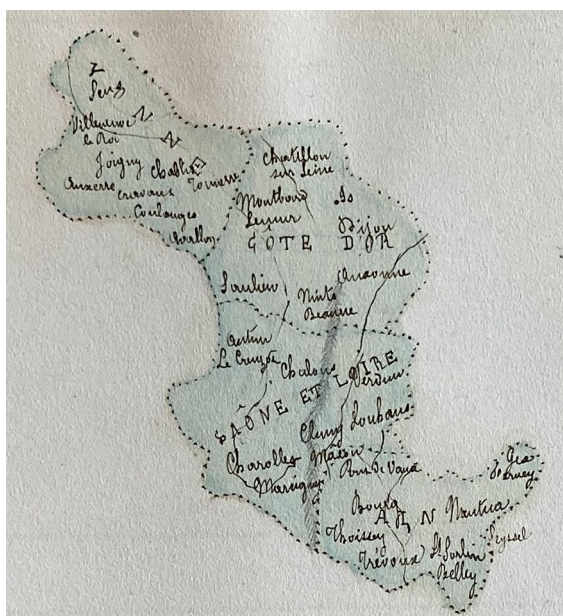 Sens
Villeneuve
le Roi
YONNE
Joigny
Chablis
Tonnerre
Auxerre
Cravans
Coulanges
Avallon
Chatillon
sur Seine
Montbard
Semur
Is
Dijon
CÔTE D'OR
Auxonne
Saulieu
Nuits
Beaune
Autun
Le Creuzot
Chalons
Verdun
SAÔNE ET LOIRE
Cluny
Louhans
Charolles
Mâcon
Marcigny
Pont de Vaux
Gex
Ferney
Bourg
AIN
Nantua
Thoissey
Seyssel
Trévoux
St Sorlin
Belley